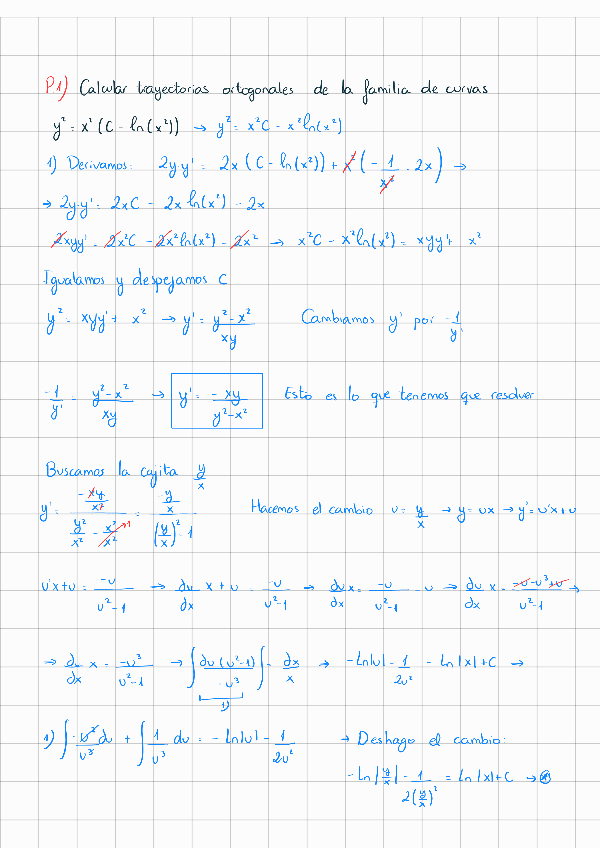 P1) Calcular trayectorias ortogonales de la familia de curvas
y² = x² (C - ln(x²)) → y² = x²C - x²ln(x²)
1) Derivamos: 2y·y' = 2x (C - ln(x²)) + x² (- 1/x² · 2x) →
→ 2y·y' = 2xC - 2x ln(x²) - 2x
2xyy' = 2x²C - 2x²ln(x²) - 2x² → x²C - x²ln(x²) = xyy' + x²
Igualamos y despejamos C
y² = xyy' + x² → y' = (y²-x²)/(xy) Cambiamos y' por -1/y'
-1/y' = (y²-x²)/(xy) → y' = (-xy)/(y²-x²) Esto es lo que tenemos que resolver
Buscamos la cajita y/x
y' = (-xy/x²)/(y²/x² - x²/x²) = (-y/x)/((y/x)² - 1) Hacemos el cambio u = y/x → y = ux → y' = u'x + u
u'x + u = -u/(u²-1) → du/dx x + u = -u/(u²-1) → du/dx x = -u/(u²-1) - u → du/dx x = (-u-u³+u)/(u²-1) →
→ du/dx x = -u³/(u²-1) → ∫ du(u²-1)/-u³ = ∫ dx/x → -ln|u| - 1/2u² = ln|x| + C →
1)
1) ∫ -u²/u³ du + ∫ 1/u³ du = -ln|u| - 1/2u² → Deshago el cambio:
-ln|y/x| - 1/2(y/x)² = ln|x| + C → *